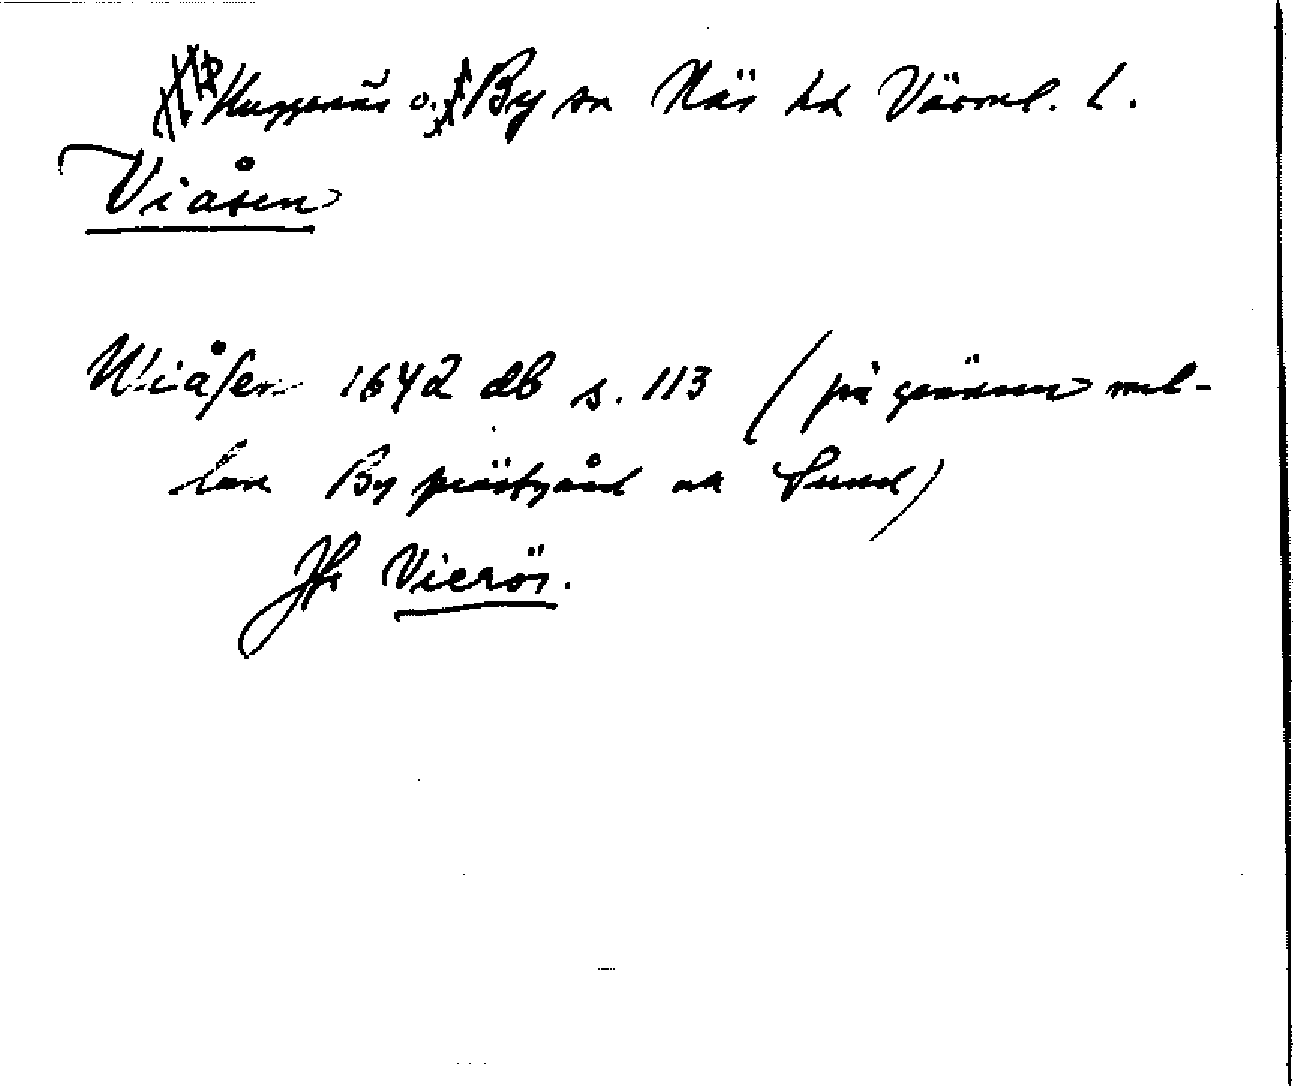 Huggenäs o. By sn Näs hd Värml. l.
Viåsen
Wiåsen 1642 db s. 113 (på gränsen mel-
lan By prästgård och Lund)
Jfr Vierös.